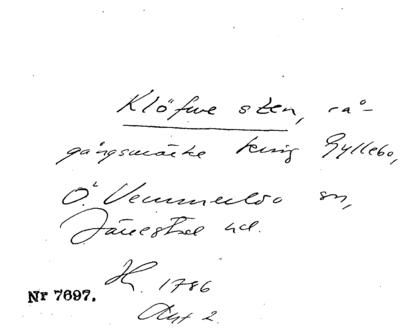 Klöfwe sten, rå-
gångsmärke kring Gyllebo,
Ö. Vemmerlöv sn,
Järrestad hd.
H. 1786
Nr 7697.
Akt 2.